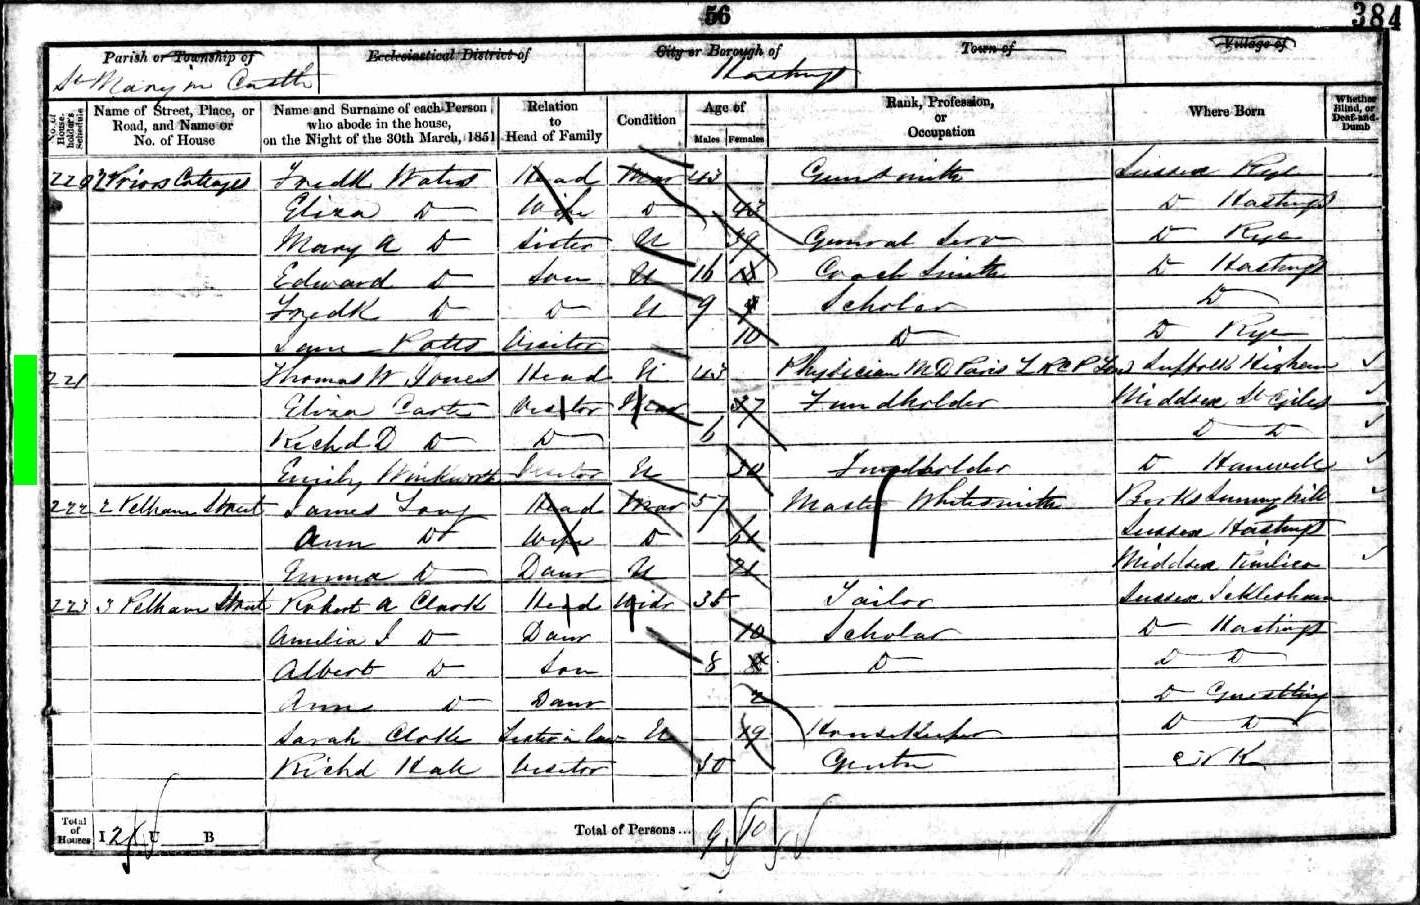 56
384
Parish or Township of
Ecclesiastical District of
City or Borough of
Town of
Village of
St Mary in Castle
Hastings
No. of House-holder's Schedule
Name of Street, Place, or Road, and Name or No. of House
Name and Surname of each Person who abode in the house, on the Night of the 30th March, 1851
Relation to Head of Family
Condition
Age of
Males
Females
Rank, Profession, or Occupation
Where Born
Whether Blind, or Deaf-and-Dumb
220 Priors Cottages Fredk Waters Head Mar 43 Gunsmith Sussex Rye
Eliza Do Wife Do 43 Do Hastings
Mary A Do Sister U 39 General Serv Do Rye
Edward Do Son U 16 Coach Smith Do Hastings
Fredk Do Do U 9 Scholar Do
Jane Potts Visitor 10 Do Do Rye
221 Thomas W Jones Head U 43 Physician MD Paris LRCP Lond Suffolk Higham
Eliza Carter Visitor Mar 37 Fundholder Middsex St Giles
Richd D Do Do 6 Do Do
Emily Winkworth Visitor U 30 Fundholder Do Hanwell
222 2 Pelham Street James Head Mar 57 Master Whitesmith Berks Sunning Hill
Ann Do Wife Do 61 Sussex Hastings
Emma Do Daur U 21 Middsex Pimlico
223 3 Pelham Street Robert A Clark Head Widr 38 Tailor Sussex
Amelia J Do Daur 10 Scholar Do Hastings
Albert Do Son 8 Do Do Do
Ann Do Daur 2 Do Guestling
Sarah Clark Sister in law U 19 HouseKeeper Do Do
Richd Hall Visitor 50 N K
Total of Houses I 2 U B
Total of Persons... 9 10